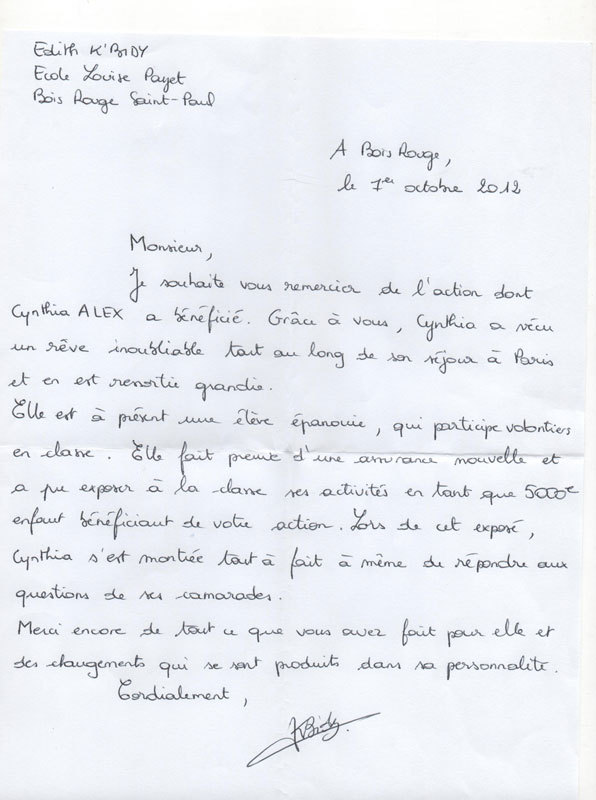 Edith K'BIDY
Ecole Louise Payet
Bois Rouge Saint-Paul
A Bois Rouge,
le 1er octobre 2012
Monsieur,
Je souhaite vous remercier de l'action dont
Cynthia ALEX a bénéficié. Grâce à vous, Cynthia a vécu
un rêve inoubliable tout au long de son séjour à Paris
et en est ressortie grandie.
Elle est à présent une élève épanouie, qui participe volontiers
en classe. Elle fait preuve d'une assurance nouvelle et
a pu exposer à la classe ses activités en tant que 5000e
enfant bénéficiant de votre action. Lors de cet exposé,
Cynthia s'est montrée tout à fait à même de répondre aux
questions de ses camarades.
Merci encore de tout ce que vous avez fait pour elle et
des changements qui se sont produits dans sa personnalité.
Cordialement,
KBidy.